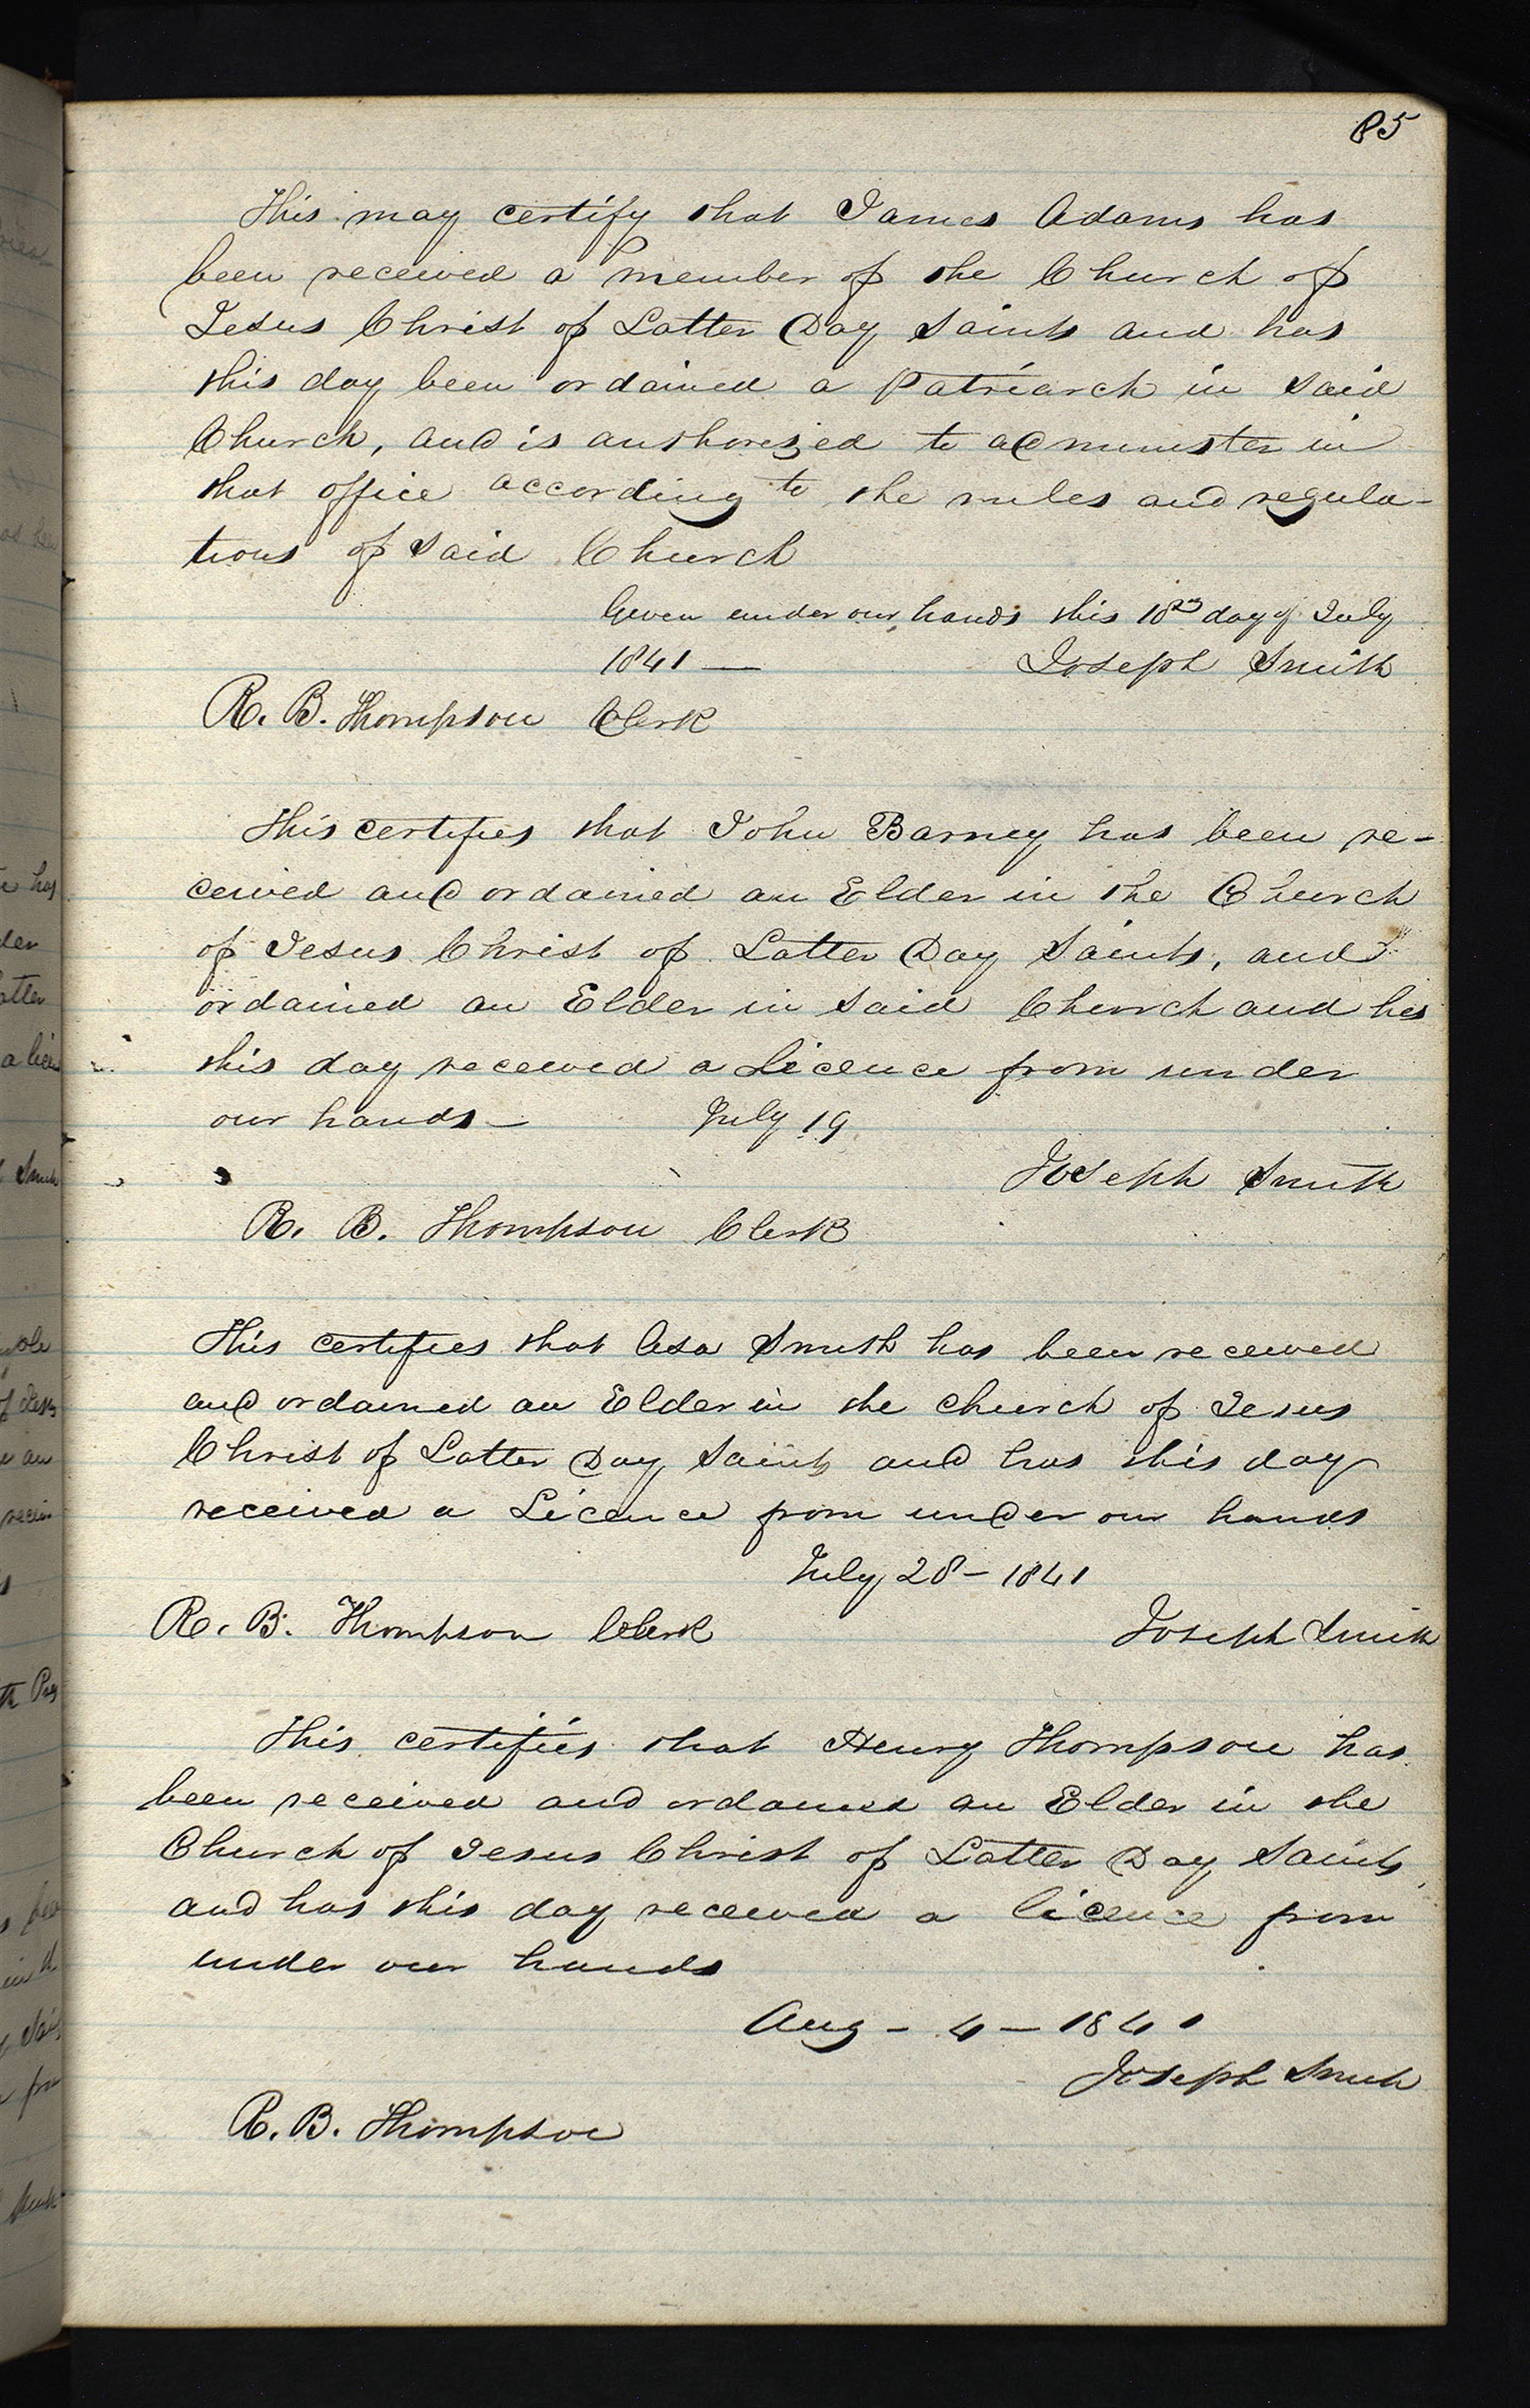 85
This may certify that James Adams has
been received a member of the Church of
Jesus Christ of Latter Day Saints and has
this day been ordained a Patriarch in said
Church, and is authorized to administer in
that office according to the rules and regula-
tions of said Church
Given under our hands this 18th day of July
1841 — Joseph Smith
R. B. Thompson Clerk
This certifies that John Barney has been re-
ceived and ordained an Elder in the Church
of Jesus Christ of Latter Day Saints, and
ordained an Elder in said Church and has
this day received a Licence from under
our hands — July 19
Joseph Smith
R. B. Thompson Clerk
This certifies that Asa Smith has been received
and ordained an Elder in the church of Jesus
Christ of Latter Day Saints and has this day
received a Licence from under our hands
July 28 – 1841
R. B. Thompson Clerk Joseph Smith
This certifies that Henry Thompson has
been received and ordained an Elder in the
Church of Jesus Christ of Latter Day Saints
and has this day received a licence from
under our hands
Aug – 4 – 1841
Joseph Smith
R. B. Thompson